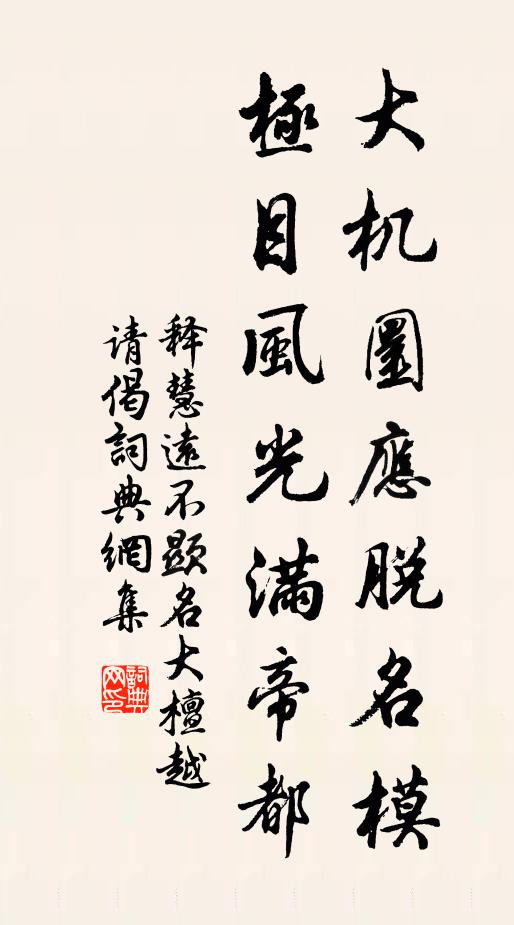 大机圓應脱名模
極目風光滿帝都
释慧遠不顯名大檀越
请偈詞典網集
詞典
网印